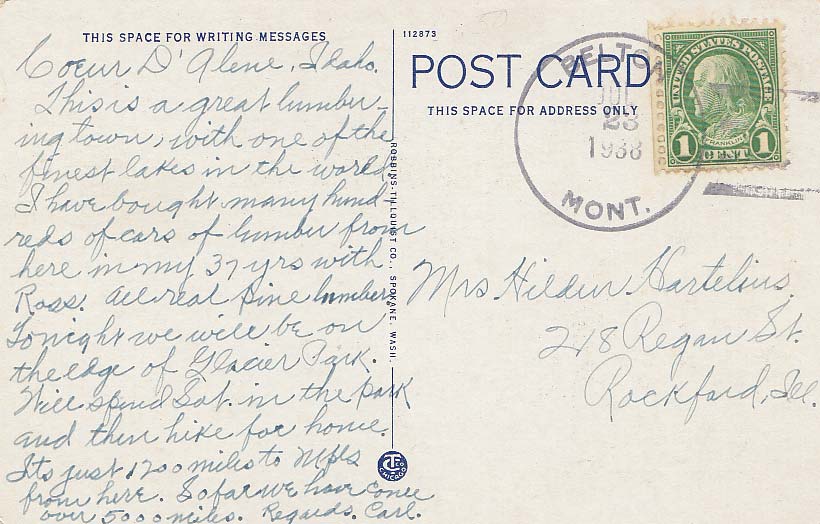 THIS SPACE FOR WRITING MESSAGES
Coeur D'Alene, Idaho.
This is a great lumber-
ing town, with one of the
finest lakes in the world
I have bought many hund
reds of cars of lumber from
here in my 37 yrs with
Ross. All real pine lumber.
Tonight we will be on
the edge of Glacier Park.
Will spend Sat. in the park
and then hike for home.
Its just 1200 miles to Mpls
from here. So far we have come
over 5000 miles. Regards. Carl.
ROBBINS-TILLQUIST CO., SPOKANE, WASH.
CHICAGO
112873
POST CARD
THIS SPACE FOR ADDRESS ONLY
BELTON
JUL
23
1938
MONT.
UNITED STATES POSTAGE
FRANKLIN
1 CENT 1
Mrs Hildur Hartelius
218 Regan St.
Rockford, Ill.